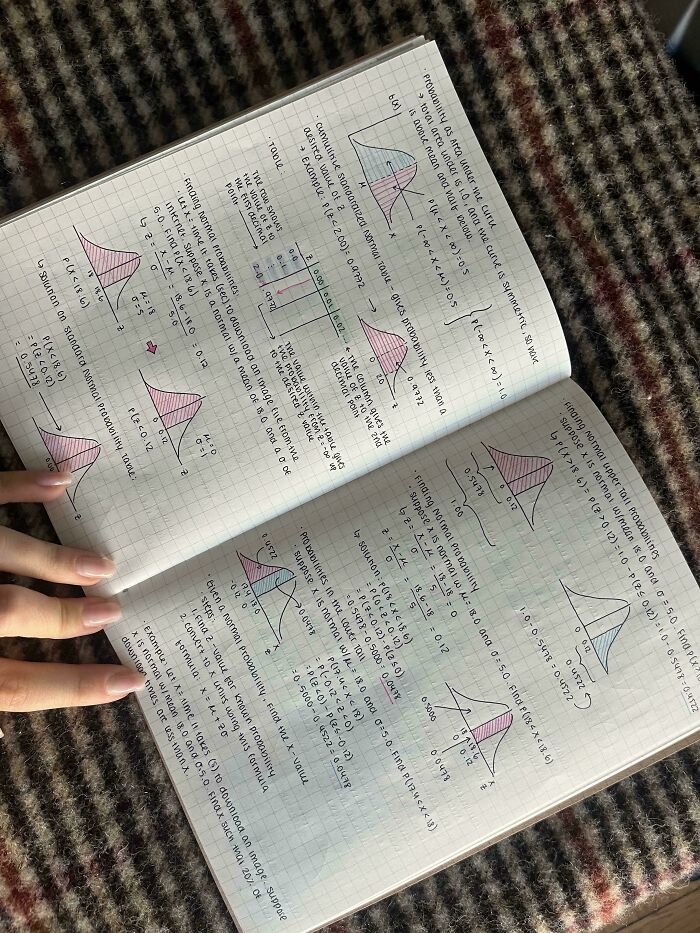 · probability as area under the curve
→ total area under is 1.0, and the curve is symmetric, so half
is above mean and half below.
f(x)
P(μ < X < ∞) = 0.5
P(-∞ < X < μ) = 0.5
P(-∞ < X < ∞) = 1.0
μ
X
· cumulative standardized normal table - gives probability less than a
desired value of z
→ Example: P(Z < 2.00) = 0.9772
→
0.9772
0
2.0
Z
· Table:
The row shows
the value of z to
the first decimal
point
Z
0.00
0.01
0.02
0.0
0.1
2.0
.9772
← The column gives the
value of z to the 2nd
decimal point
The value within the table gives
the probability from z = -∞ up
to the desired z value
Finding normal probabilities
· Let X = time it takes (sec) to download an image file from the
internet. Suppose X is a normal w/a mean of 18.0 and a σ of
5.0. Find P(X < 18.6)
↳ Z = X - μ / σ = 18.6 - 18.0 / 5.0 = 0.12
μ = 18
σ = 5
18
18.6
X
P(X < 18.6)
μ = 0
σ = 1
0
0.12
Z
P(Z < 0.12)
↳ solution on standard normal probability table:
P(X < 18.6)
= P(Z < 0.12)
= 0.5478
Z
Finding normal upper tail probabilities
· suppose X is normal w/mean 18.0 and σ = 5.0.
↳ P(X > 18.6) = P(Z > 0.12) = 1.0 - P(Z ≤ 0.12) = 1.0 - 0.5478 = 0.4522
0
0.12
Z
0.5478
1.00
0
0.12
Z
0.4522
1.0 - 0.5478 = 0.4522
· Finding normal probability
· suppose X is normal w/ μ = 18.0 and σ = 5.0. Find P(18 < X < 18.6)
↳ Z = X - μ / σ = 18 - 18 / 5 = 0
Z = X - μ / σ = 18.6 - 18 / 5 = 0.12
↳ solution: P(18 < X < 18.6)
= P(0 < Z < 0.12)
= P(Z < 0.12) - P(Z ≤ 0)
= 0.5478 - 0.5000 = 0.0478
0.5000
18
18.6
X
0
0.12
Z
0.0478
· Probabilities in the lower tail
· suppose X is normal w/ μ = 18.0 and σ = 5.0. Find P(17.4 < X < 18)
P(17.4 < X < 18)
= P(-0.12 < Z < 0)
= P(Z < 0) - P(Z ≤ -0.12)
= 0.5000 - 0.4522 = 0.0478
0.4522
0.0478
17.4
18.0
X
-0.12
0
Z
· Given a normal probability, find the X-value
steps:
1. Find Z-value for known probability
2. convert to X units using this formula
formula: X = μ + Zσ
Example: Let X = time it takes (s) to download an image. suppose
X is normal w/mean 18.0 and σ = 5.0. Find X such that 20% of
download times are less than X.